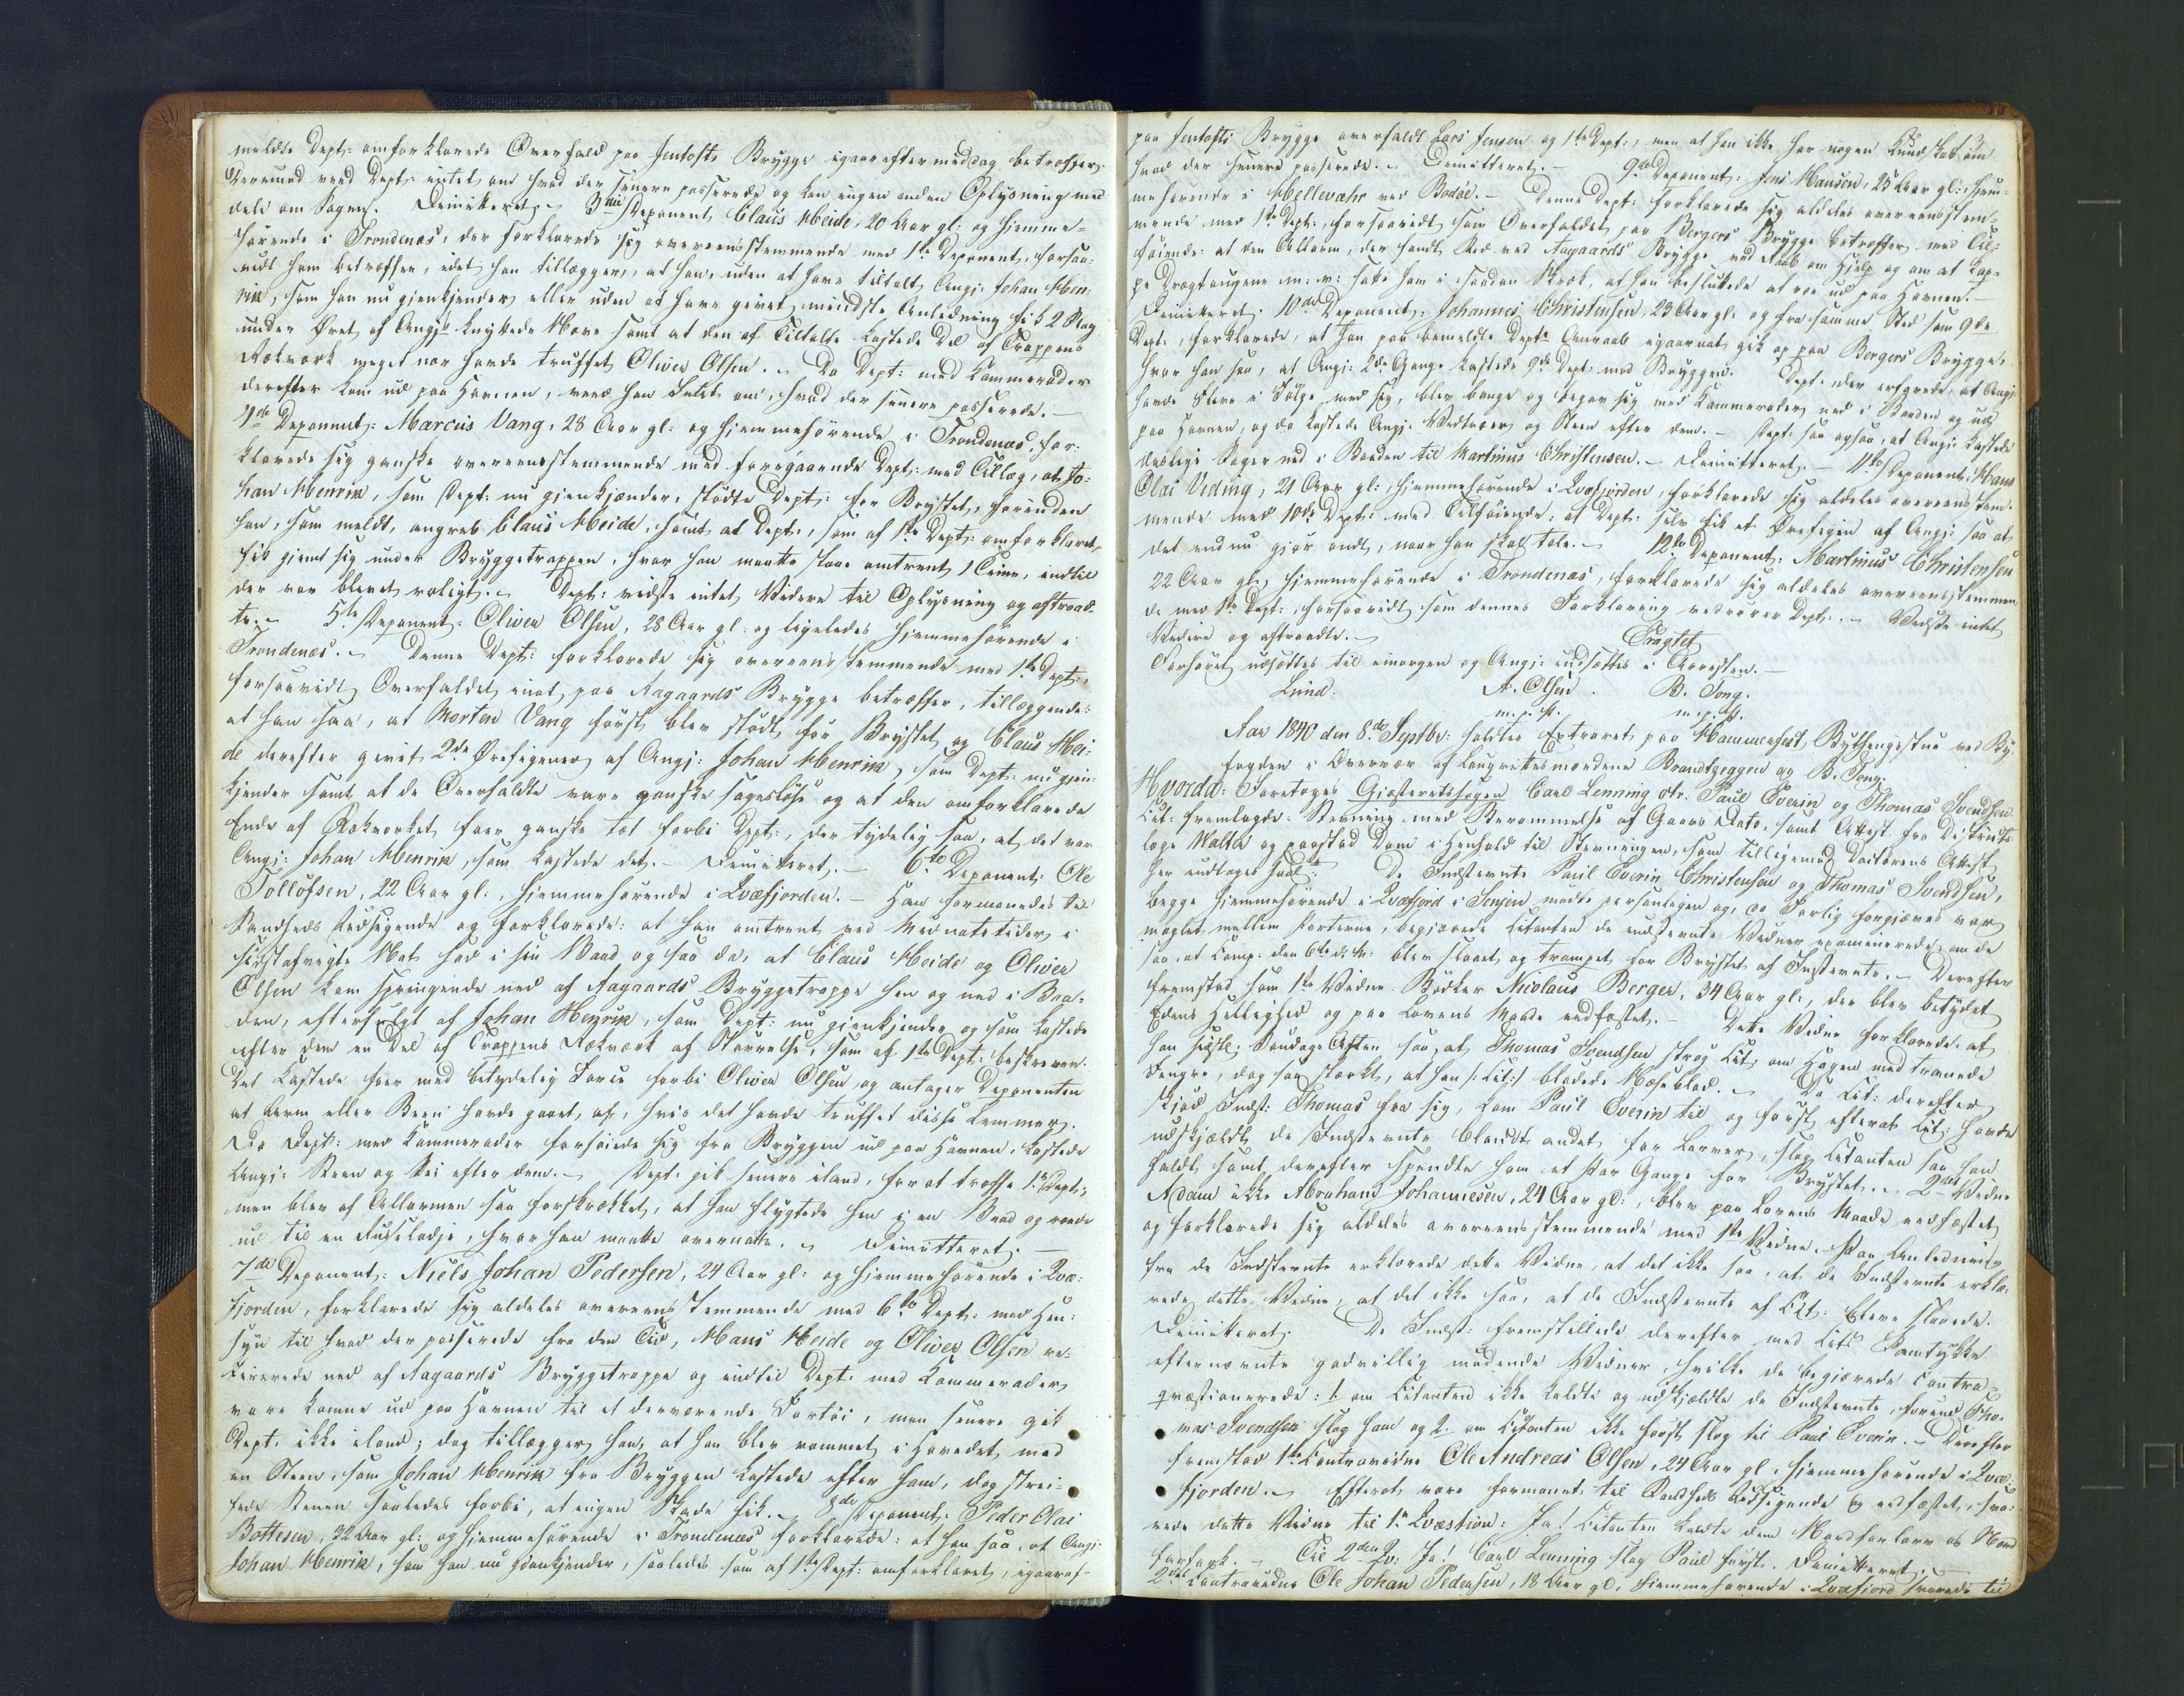 meldte Dept: omforklarede Overfald paa Jentofts Brygge igaareftermeddag betræffer,
Derimod veed Dept: intet om hvad der senere passerede og kan ingen anden Oplysning med
dele om Sagen. Dimitteret. 3die Deponent Claus Heide, 20 Aar gl: og hjemme-
hørende i Trondenæs, der forklarede sig overeensstemmende med 1ste Deponent, forsaa-
vidt ham betræffer, idet han tillægger, at han, uden at have tiltalt Angj: Johan Hen-
rik, som han nu gjenkjender eller uden at have givet mindste Anledning fik 2 Slag
under Øret af Angjs knyttede Næve samt at den af Tiltalte kastede Del af Trappens
Rækværk meget nær havde truffet Oliver Olsen. Da Dept: med Kammerader
derefter kom ud paa Havnen, veed han Intet om, hvad der senere passerede. —
4de Deponent: Marcus Vang, 28 Aar gl: og hjemmehørende i Trondenæs, for-
klarede sig ganske overeensstemmende med foregaaende Dept: med Tillæg, at Jo-
han Henrik, som Dept: nu gjenkjender, stødte Dept: for Brystet, forinden
han, som meldt, angreb Claus Heide, samt at Dept:, som af 1ste Dept: omforklaret,
fik gjemt sig under Bryggetrappen, hvor han maatte staae omtrent 1 Time, indtil
der var blevet roligt. Dept: vidste intet Videre til Oplysning og aftraad-
te. 5te Deponent: Oliver Olsen, 28 Aar gl: og ligeledes hjemmehørende i
Trondenæs. — Denne Dept: forklarede sig overeensstemmende med 1ste Dept:,
forsaavidt Overfaldet inat paa Aagaards Brygge betræffer, tillæggende:
at han saa, at Morten Vang først blev stødt for Brystet og Claus Hei-
de derefter givet 2de Ørefigener af Angj: Johan Henrik, som Dept: nu gjen-
kjender samt at de Overfaldte vare ganske sagesløse og at den omforklarede
Ende af Rækværket foer ganske tæt forbi Dept:, der tydelig saa, at det var
Angj: Johan Henrik, som kastede det. — Dimitteret. — 6te Deponent: Ole
Tollofsen, 22 Aar gl., hjemmehørende i Qvæfjorden. — Han formanedes til
Sandheds Udsigende og forklarede: at han omtrent ved Midnatstider i
sidstafvigte Nat sad i sin Baad og saa da, at Claus Heide og Oliver
Olsen kom springende ned af Aagaards Bryggetrappe hen og ned i Baa-
den, efterfulgt af Johan Henrik, som Dept: nu gjenkjender og som kastede
efter dem en Del af Trappens Rækværk af Størrelse, som af 1ste Dept: beskreven.
Det kastede foer med betydelig Force forbi Oliver Olsen og antager Deponenten
at Arm eller Been havde gaaet af, hvis det havde truffet disse Lemmer.
Da Dept: med Kammerader forføiede sig fra Bryggen ud paa Havnen, kastede
Angj: Steen og Sei efter dem. — Dept: gik senere iland, for at træffe 1ste Dept:,
men blev af Allarmen saa forskrækket, at han flygtede hen i en Baad og roede
ud til en Russelodje, hvor han maatte overnatte. — Dimitteret. —
7de Deponent: Niels Johan Pedersen, 24 Aar gl: og hjemmehørende i Qvæ-
fjorden, forklarede sig aldeles overeensstemmende med 6te Dept: med Hen-
syn til hvad der passerede fra den Tid, Claus Heide og Oliver Olsen re-
tirerede ned af Aagaards Bryggetrappe og indtil Dept: med Kammerader
vare komne ud paa Havnen til et derværende Fartøi, men senere gik
Dept: ikke iland; dog tillægger han, at han blev rammet i Hovedet med
en Steen, som Johan Henrik fra Bryggen kastede efter ham, dog strei-
fede Stenen saaledes forbi, at ingen Skade fik. — 8de Deponent: Peder Olai
Bottesen, 22 Aar gl: og hjemmehørende i Trondenæs forklarede: at han saa, at Angj:
Johan Henrik, som han nu gjenkjender, saaledes som af 1ste Dept: omforklaret, igaaraf-
paa Jentofts Brygge overfaldt Lars Jensen og 1ste Dept:, men at han ikke har nogen Kundskab om
hvad der senere passerede. — Dimitteret. — 9de Deponent: Jens Hansen, 25 Aar gl: hjem-
mehørende i Hellevahr ved Bodøe. — Denne Dept: forklarede sig aldeles overeensstem-
mende med 1ste Dept: forsaavidt som Overfaldet paa Bergers Brygge betræffer med Til-
føiende: at den Allarm, der fandt Sted ved Aagaards Brygge ved Raab om Hjelp og om at kap-
pe Dragtougene m: v: satte ham i saadan Skræk, at han besluttede at roe ud paa Havnen. —
Dimitteret. 10de Deponent: Johannes Christensen, 23 Aar gl: og fra samme Sted som 9de
Dept:, forklarede, at han paa bemeldte Depts Anraab igaarnat gik op paa Bergers Brygge,
hvor han saa, at Angj: 2de Gange kastede 9de Dept: mod Bryggen. Dept:, der erfarede, at Angj:
havde Flere i Følge med sig, blev bange og begav sig med Kammerader ned i Baaden og ud
paa Havnen, og da kastede Angj: Vedtræer og Steen efter dem. — Dept: saa ogsaa, at Angj: kastede
deslige Sager ned i Baaden til Martinus Christensen. — Dimitteret. — 11te Deponent: Hans
Olai Viding, 21 Aar gl:, hjemmehørende i Qvæfjorden, forklarede sig aldeles overeensstem-
mende med 10de Dept: med Tilføiende: at Dept: selv fik et Ørefigen af Angj: saa at
det endnu gjør ondt, naar han skal tale. — 12te Deponent: Martinus Christensen
22 Aar gl:, hjemmehørende i Trondenæs, forklarede sig aldeles overeensstemmen-
de med 1ste Dept:, forsaavidt som dennes Forklaring vedrører Dept:. — Vidste intet
Videre og aftraadte. —
Fragtet
Forhøret udsættes til imorgen og Angj: indsættes i Arresten. —
Lund. A. Olsen. B. Tong.
m. p. P. m. p. P.
Aar 1840 den 8de Septbr: holdtes Extraret paa Hammerfest Bythingsstue ved By-
fogden i Overvær af Laugrettesmændene Brandtzeggen og B. Tong.
Hvorda: Foretoges Giæsteretssagen Carl Lenning ctr. Paul Everin og Thomas Svendsen.
Cit: fremlagde: Stevning med Berammelse af Gaars Dato, samt Attest fra Districts-
læge Waltz og paastod Dom i Henhold til Stevningen, som tilligemed Doctorens Attest
her indtages saal: De Indstevnte Paul Everin Christensen og Thomas Svendsen,
begge hjemmehørende i Qvæfjord i Senjen mødte personligen og, da Forlig forgjæves var
mæglet mellem Parterne, begjærede Citanten de indstevnte Vidner examinerede om de
saa, at Comp: den 6te ds: M: blev slaaet og trampet for Brystet af Indstevnte. — Derefter
fremstod som 1ste Vidne: Bødker Nicolaus Berger, 34 Aar gl:, der blev betydet
Edens Hellighed og paa Lovens Maade eedfæstet. — Dette Vidne forklarede: at
han sidstl: Søndags Aften saa, at Thomas Svendsen strøg Cit: om Hagen med tvende
Fingre, dog saa stærkt, at han /: Cit: / blødede Næseblod. — Da Cit: derefter
skjød Indst: Thomas fra sig, kom Paul Everin til og først efterat Cit: havde
udskjældt de Indstevnte blandt andet for Larver, slog Citanten saa han
faldt, samt derefter spændte ham et Par Gange for Brystet. — 2det Vidne
Adam ikke Abraham Johannesen, 24 Aar gl:, blev paa Lovens Maade eedfæstet
og forklarede sig aldeles overeensstemmende med 1ste Vidne. Paa Anledning
fra de Indstevnte erklærede dette Vidne, at det ikke saa, at de Indstevnte erklæ-
rede dette Vidne, at det ikke saa, at de Indstevnte af Cit: bleve slaaede.
Dimitteret. De Indst: fremstillede derefter med Cits Samtykke
efternævnte godvillig mødende Vidner, hvilke de begjærede contra-
qvæstionerede: 1 om Citanten ikke kaldte og udskjældte de Indstevnte, forend Tho-
mas Svendsen slog ham og 2. om Citanten ikke først slog til Paul Everin. — Derefter
fremstod 1ste Contravidne Ole Andreas Olsen, 24 Aar gl:, hjemmehørende i Qvæ-
fjorden. — Efterat være formanet til Sandheds Udsigende og eedfæstet, sva-
rede dette Vidne til 1ste Qvæstion: Ja! Citanten kaldte dem Nordfarlarv og Nord
Til 2den Qv: Ja! Carl Lenning slog Paul først. Dimitteret. —
2det Contravidne Ole Johan Pedersen, 18 Aar gl:, hjemmehørende i Qvæfjord svarede til